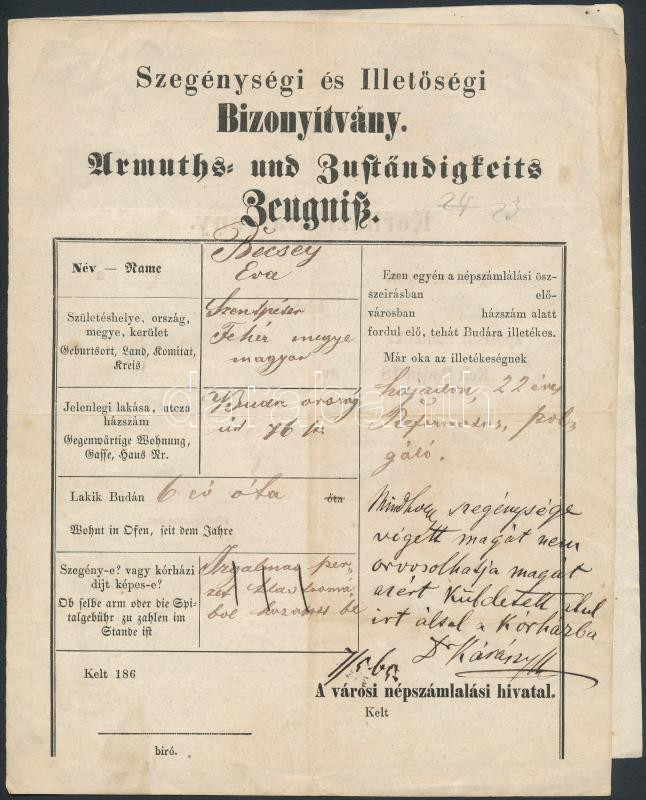 Szegénységi és Illetőségi
Bizonyítvány.
Armuths- und Zuständigkeits
Zeugniß.
24 23
Név — Name
Becsey
Eva
Születéshelye, ország,
megye, kerület
Geburtsort, Land, Komitat,
Kreis
Szentpéter
Fehér megye
magyar
Jelenlegi lakása, utcza
házszám
Gegenwärtige Wohnung,
Gasse, Haus Nr.
Buda ország
út 76 sz
Lakik Budán 6 éó óta óta
Wohnt in Ofen, seit dem Jahre
Szegény-e? vagy kórházi
dijt képes-e?
Ob selbe arm oder die Spi-
talgebühr zu zahlen im
Stande ist
Irgalmas per-
be
Kelt 186
biró.
Ezen egyén a népszámlálási ösz-
szeirásban elő-
városban házszám alatt
fordul elő, tehát Budára illetékes.
Már oka az illetékeségnek
hajadon, 22 éves
Reformatus, szol
gáló.
Mindhogy szegénysége
végett magát nem
orvosolhatja magát
azért küldetett alul
irt által a Kórházba
Dr
7/5 65
A városi népszámlalási hivatal.
Kelt
darabanth